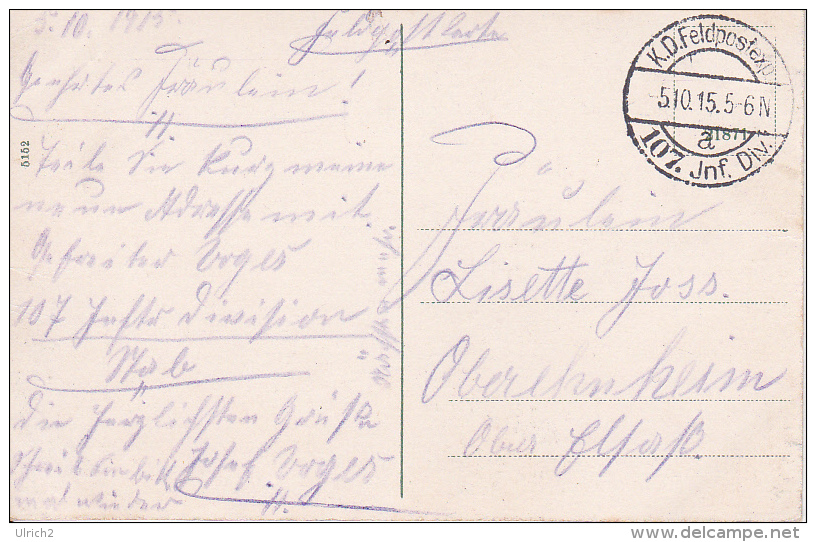 5.10.1915.
Feldpostkarte
Geehrtes Fräulein!
Teile Sie kurz meine
neue Adresse mit.
Gefreiter Voges
107 Inftr Division
Stab
Die herzlichsten Grüße
Josef Voges
mal wieder
5152
K.D.Feldpostexp.
5.10.15.5-6N
a
107. Inf. Div.
Fräulein
Lisette Joss.
Oberehnheim
Ober Elsaß.
Ulrich2
delcampe.net